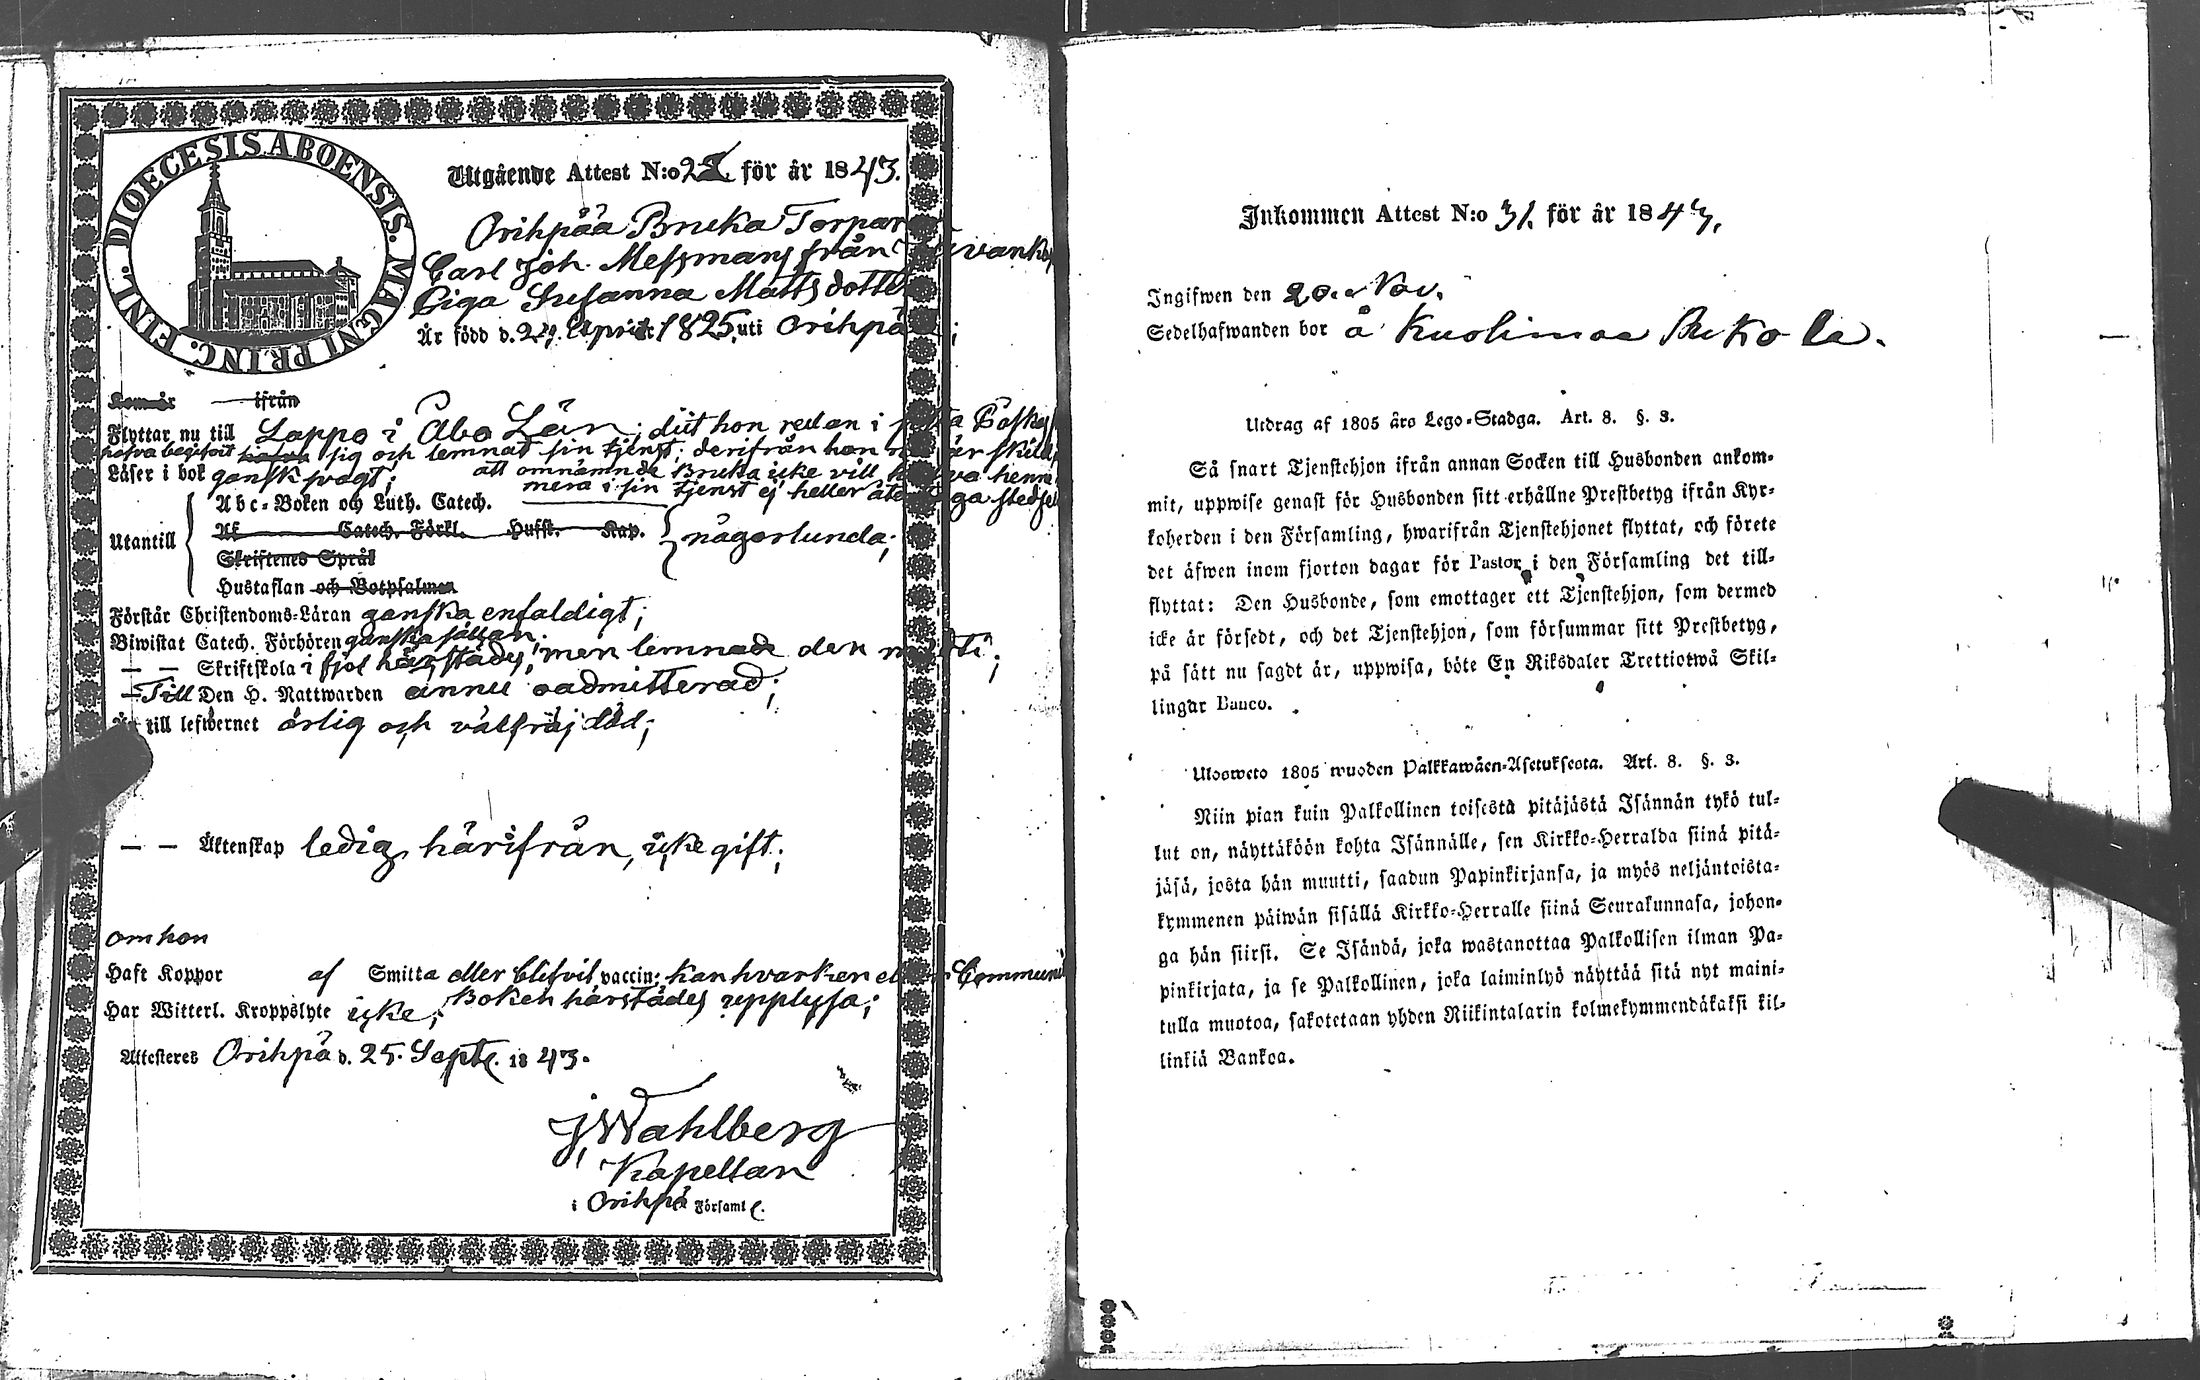 DIOECESIS ABOENSIS. MAGNI PRINC. FINL.
Utgående Attest N:o 22 för år 1843.
Orihpää Bruka Torpar
Carl Joh. Messmans från
Piga Susanna Matts dotte
Är född d. 24. April 1825, uti Orihpä
Kom år ifrån
Flyttar nu till Loppo i Åbo Län; dit hon redan i
hafva begifvit hafva sig och lemnat sin tjenst; derifrån hon
Läser i bok ganska svagt; att omnämnde Bruka icke vill
mera i sin tjenst ej heller
Abc-Boken och Luth. Catech.
Utantill Af Catech. Förkl. Hufst. Kap. någorlunda;
Skriftenes Språk
Hustaflan och Botpsalmen
Förstår Christendoms-Läran ganska enfaldigt;
Biwistat Catech. Förhören ganska sällan;
— — Skriftskola i fjol härstädes; men lemnade den
— Till Den H. Nattwarden ännu oadmitterad;
till lefwernet ärlig och välfräjdad;
— — Äktenskap ledig härifrån, icke gift;
om hon
Haft Koppor af Smitta eller blifvit vaccin; kan hvarken Communi
Har Witterl. Kroppslyte icke; Boken härstädes upplysa;
Attesteres Orihpä d. 25. Sept. 1843.
J. Wahlberg
Kapellan
i Orihpä Församl.
Inkommen Attest N:o 31. för år 1843.
Ingifwen den 20. Nov.
Sedelhafwanden bor å Kuolimaa
Utdrag af 1805 års Lego-Stadga. Art. 8. §. 3.
Så snart Tjenstehjon ifrån annan Socken till Husbonden ankom-
mit, uppwise genast för Husbonden sitt erhållne Prestbetyg ifrån Kyr-
koherden i den Församling, hwarifrån Tjenstehjonet flyttat, och förete
det äfwen inom fjorton dagar för Pastor i den Församling det till-
flyttat: Den Husbonde, som emottager ett Tjenstehjon, som dermed
icke är försedt, och det Tjenstehjon, som försummar sitt Prestbetyg,
på sätt nu sagdt är, uppwisa, böte En Riksdaler Trettiotwå Skil-
lingar Banco.
Ulosweto 1805 wuoden Palkkawäen-Asetuksesta. Art. 8. §. 3.
Niin pian kuin Palkollinen toisesta pitäjästä Isännän tykö tul-
lut on, näyttäköön kohta Isännälle, sen Kirkko-Herralda siinä pitä-
jäsä, josta hän muutti, saadun Papinkirjansa, ja myös neljäntoista-
kymmenen päiwän sisällä Kirkko-Herralle siinä Seurakunnasa, johon-
ga hän siirsi. Se Isändä, joka wastanottaa Palkollisen ilman Pa-
pinkirjata, ja se Palkollinen, joka laiminlyö näyttää sitä nyt maini-
tulla muotoa, sakotetaan yhden Riikintalarin kolmekymmendäkaksi kil-
linkiä Bankoa.